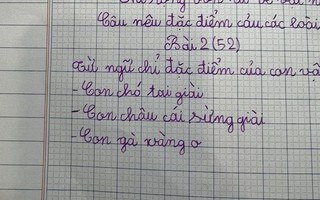 Câu nêu đặc điểm của các loài
Bài 2 (52)
Từ ngữ chỉ đặc điểm của con vậ
- Con chó tai giài
- Con châu cái sừng giài
- Con gà vàng o